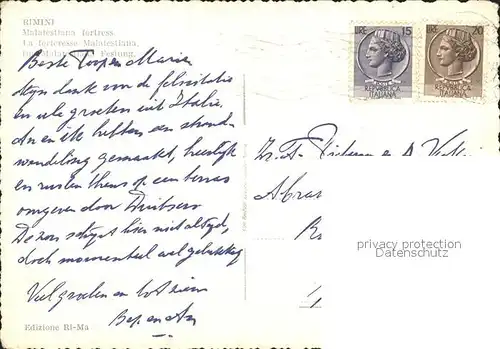 RIMINI
Malatestiana fortress.
La forteresse Malatestiana.
Festung.
Beste Toop en Marie
dank voor de felicitatie
en alle groeten uit Italie.
An en ik hebben een strand-
wandeling gemaakt, heerlijk
en rusten thans op een terras
omgeven door Duitsers
De zon schijnt hier niet altijd,
doch momenteel wel gelukkig
Veel groeten en tot ziens
Bep en An
Edizione Ri-Ma
LIRE 15
REPUBBLICA
ITALIANA
LIRE 20
REPUBBLICA
ITALIANA
privacy protection
Datenschutz